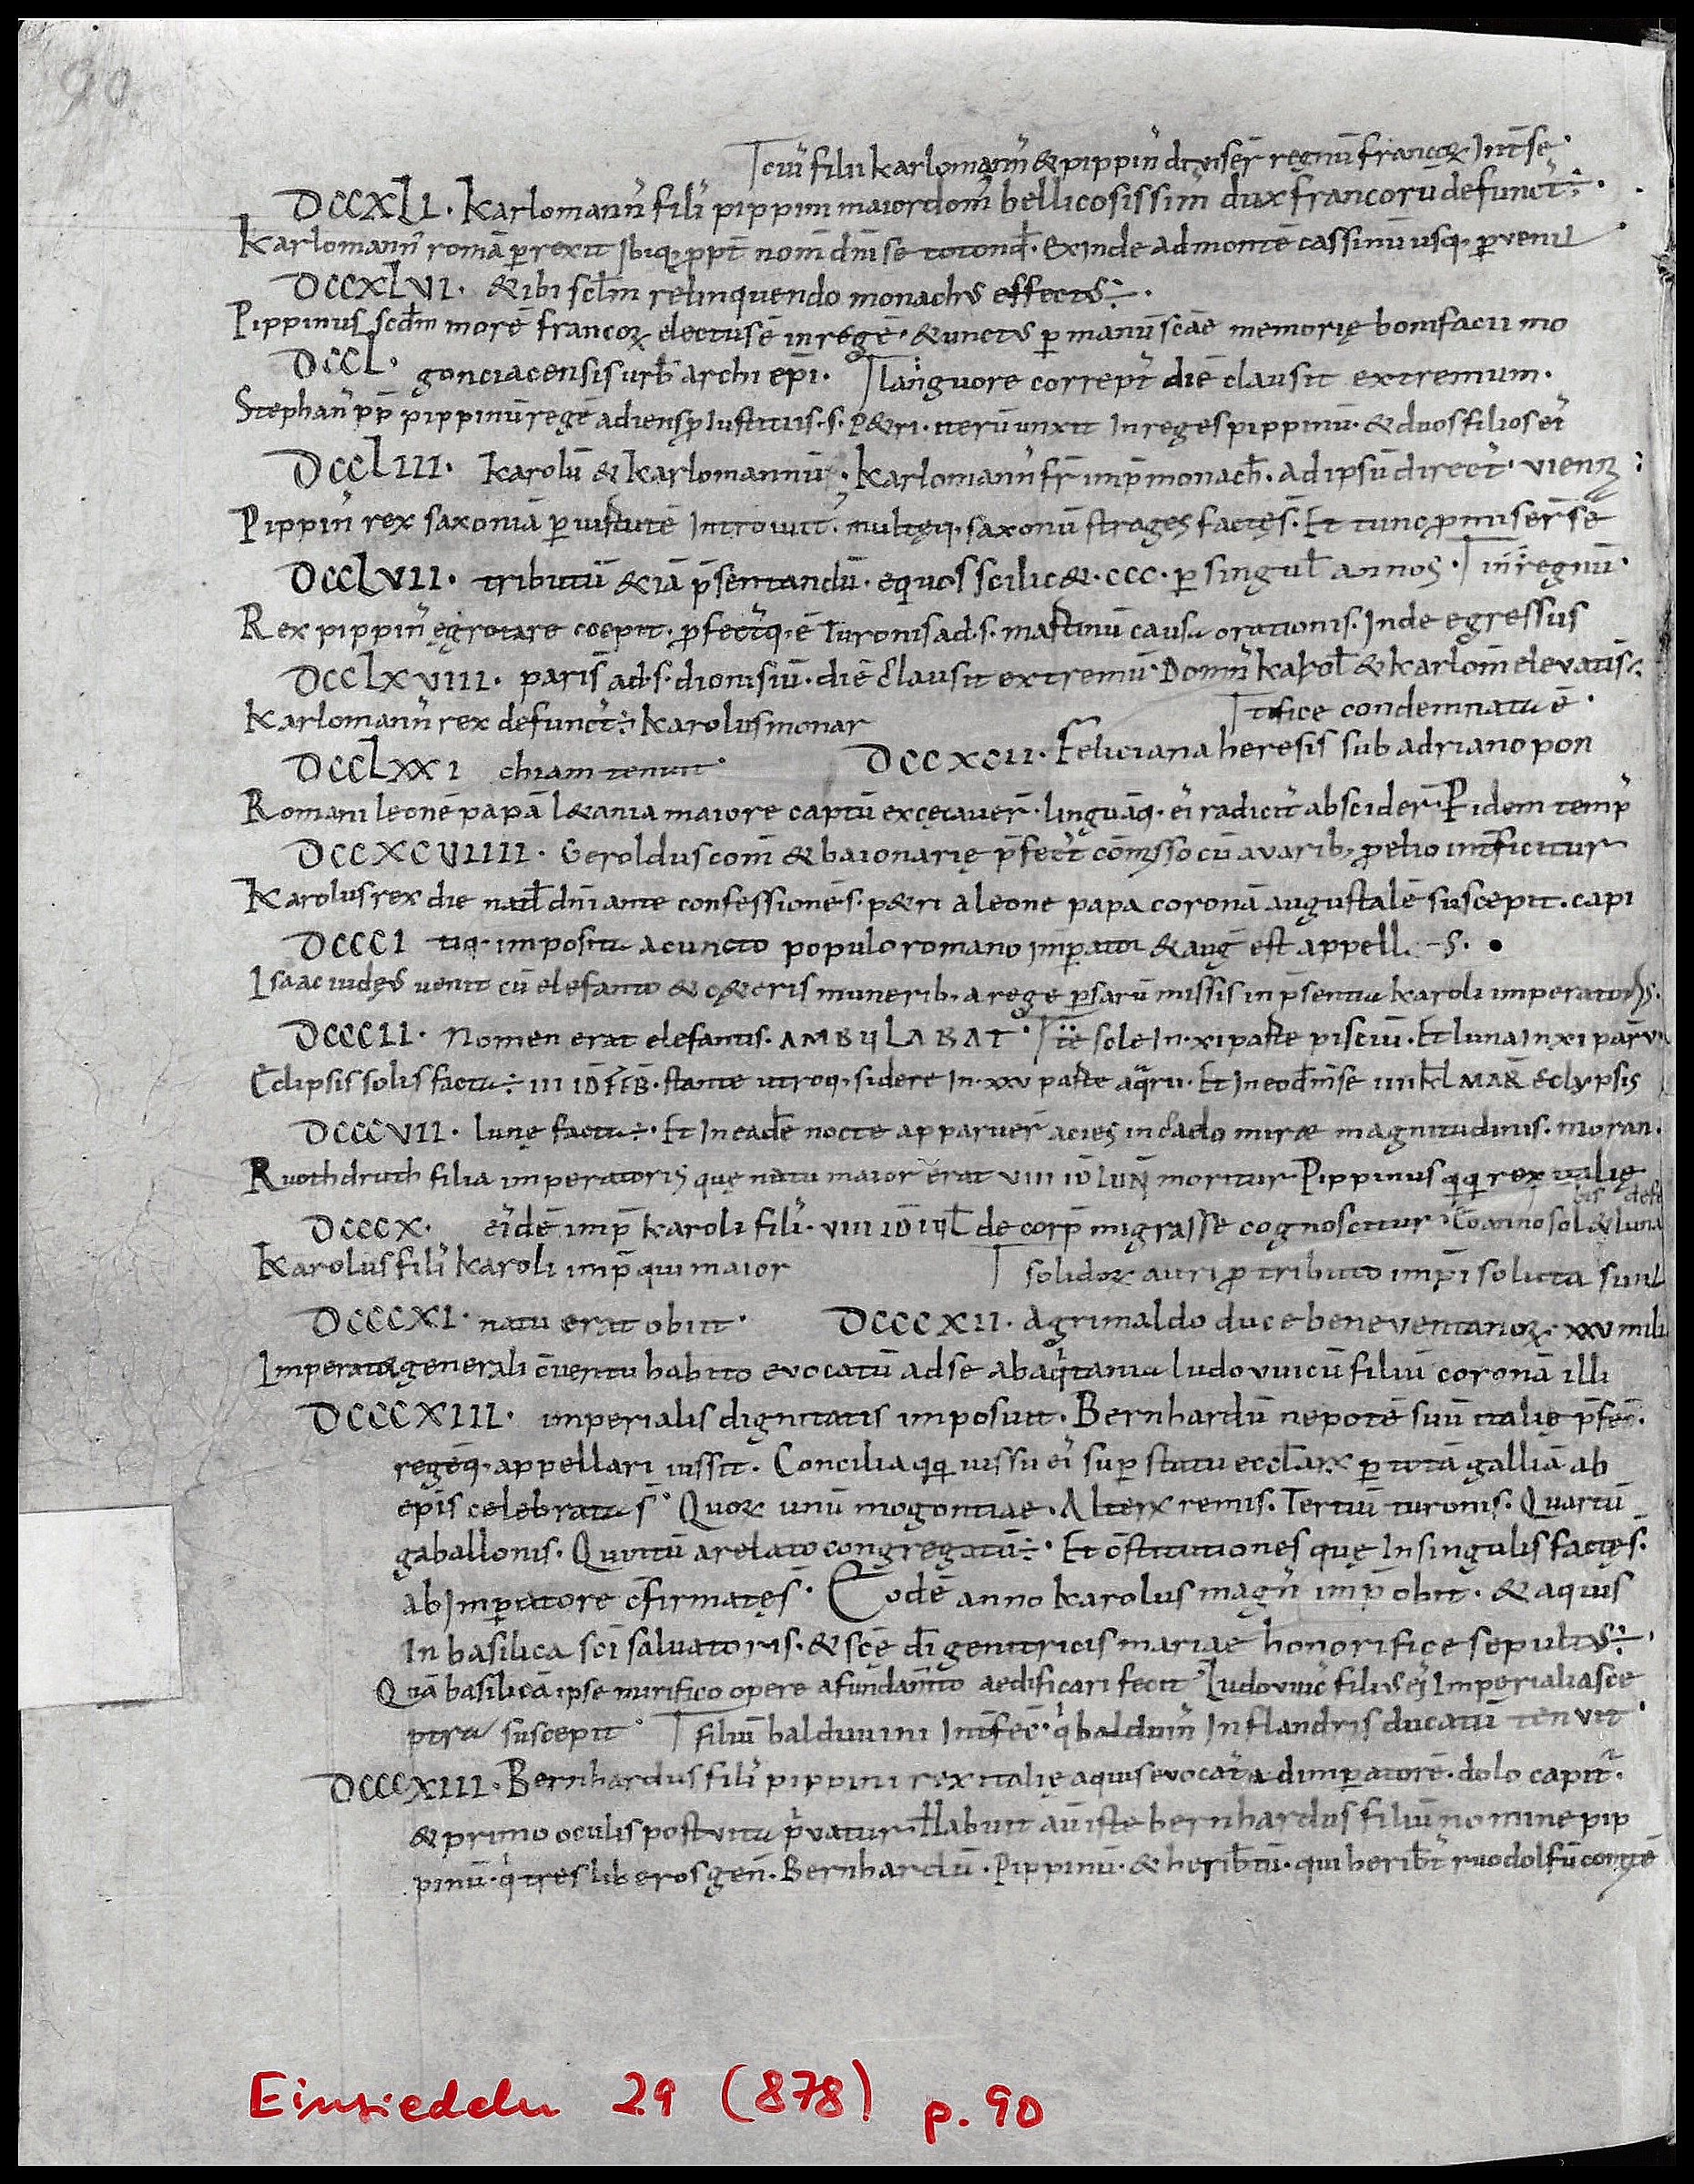 90
cui' filii karlomann' & pippin' diviser̄ regnū francoꝝ Int̄ se·
DCCXLI· Karlomann' fili' pippini maiordom' bellicosissim' dux francorū defunct' ÷·
Karlomann' romā p̱rexit Ibiq· ꝓpt̄ nom̄ dn̄i se totond̄· Exinde ad montē cassinū usq· p̱venit
DCCXLVI· & ibi sc̄lm relinquendo monachus effectus ÷·
Pippinus scd̄m morē francoꝝ electus ē in regē· & unctus p̱ manū sc̄ae memorię bonifacii mo
DCCL· gonciacensis urb̄ archiep̄i· languore corrept' diē clausit extremum·
Stephan' pp̄ pippinū regē adiens ꝓ Iustitiis·s·P&ri· iterū unxit In reges pippinū· & duos filios ei'
DCCLIII· Karolū & Karlomannū· Karlomann' fr̄ imp̄ monach̄· ad ipsū direct'· vienꝝ
Pippin' rex saxoniā p̱ virtutē Introivit· multęq· saxonū strages factę s̄· Et tunc ꝓmiser̄ se
DCCLVII· tributū & iā p̄sentandū· equos scilic&·ccc· p̱ singul̄ annos· in regnū·
Rex pippin' ęgrotare coepit· ꝓfect'q· ē Turonis ad·s· martinū causa orationis· Inde egressus
DCCLXVIII· paris̄ ad·s·dionisiū· diē clausit extremū· Domn' karol̄ & karlom̄ elevati s̄
Karlomann' rex defunct' ÷ Karolus monar
tifice condemnata ē·
DCCLXXI chiam tenuit·
DCCXCII· Feliciana heresis sub adriano pon
Romani leonē papā l&ania maiore captū excęcaver̄· linguāq· ei' radicit' absciderr̄· P idem temp'
DCCXCVIIII· Geroldus com̄ & baionarię p̄fect' com̄isso cū avarib· ꝓelio int̄ficitur
Karolus rex die natl̄ dn̄i ante confessionē s· p&ri a leone papa coronā augustalē suscepit· capi
DCCCI tiq· imposita a cuncto populo romano Imp̱ator & aug̅ est appell. -s·
Isaac iudęus venit cū elefanto & c&eris munerib· a rege p̱sarū missis in p̄sentia karoli imperatoris·
DCCCII· Nomen erat elefantis· AMBULABAT· tē sole In·xi parte pisciū· Et luna In xi par̄ v·
Eclipsis solis facta ÷ III ID FEB̄· stante utroq· sidere In·xxv parte aq̄rii· Et In eod̄ m̄se iiii kl̄ MAR̄ Eclypsis
DCCCVII· lunę facta ÷· Et In eadē nocte apparuer̄ acies in caelo mirae magnitudinis· moran·
Ruothdruth filia imperatoris quę natu maior erat VIII ID IUN̄ moritur Pippinus qq· rex italię
bis defe
DCCCX· ei'dē imp̄ karoli fili'· VIII ID IUL̄ de corp̄ migrasse cognoscitur· Eo anno sol & luna
Karolus fili' karoli imp̄ qui maior
solidoꝝ auri ꝓ tributo imp̄i soluta sunt
DCCCXI· natu erat obiit·
DCCCXII· A grimaldo duce beneventanoꝝ· xxv mili
Imperator generali c̄ventu habito evocatū ad se ab aq̄tania ludovvicū filiū coronā illi
DCCCXIII· imperialis dignitatis imposuit· Bernhardū nepotē suū italię p̄fec̄·
regēq· appellari iussit· Concilia qq· iussu ei' sup̱ statu eccl̄aꝝ p̱ totā galliā ab
ep̄is celebrata s̄· Quoꝝ unū mogontiae· Alteꝝ remis· Tertiū turonis· Quartū
gaballonis· Quintū arelato congregatū ÷· Et c̄stitutiones quę In singulis factę s̄·
ab Imp̱atore c̄firmatę s̄· Eodē anno karolus magn' imp̄ obiit· & aquis
In basilica sc̄i salvatoris· & sc̄ę d̄i genitricis mariae honorifice sepultus ÷·
Quā basilicā ipse mirifico opere a fundam̄to aedificari fecit· Ludovvic' filius ei' Imperialia sce
ptra suscepit· filiū balduuini Int̄fec̄· q' balduin' In flandris ducatū tenuit·
DCCCXIII· Bernhardus fili' pippini rex italię aquis evocat' ad imp̱atorē· dolo capit'·
& primo oculis post vita p̄vatur· Habuit au̅ iste bernhardus filiū nomine pip
pinū· q' tres liberos gen̄· Bernhardū· Pippinū· & heribt̄ū· qui heribt̄' ruodolfū comitē
Einsiedeln 29 (878) p. 90